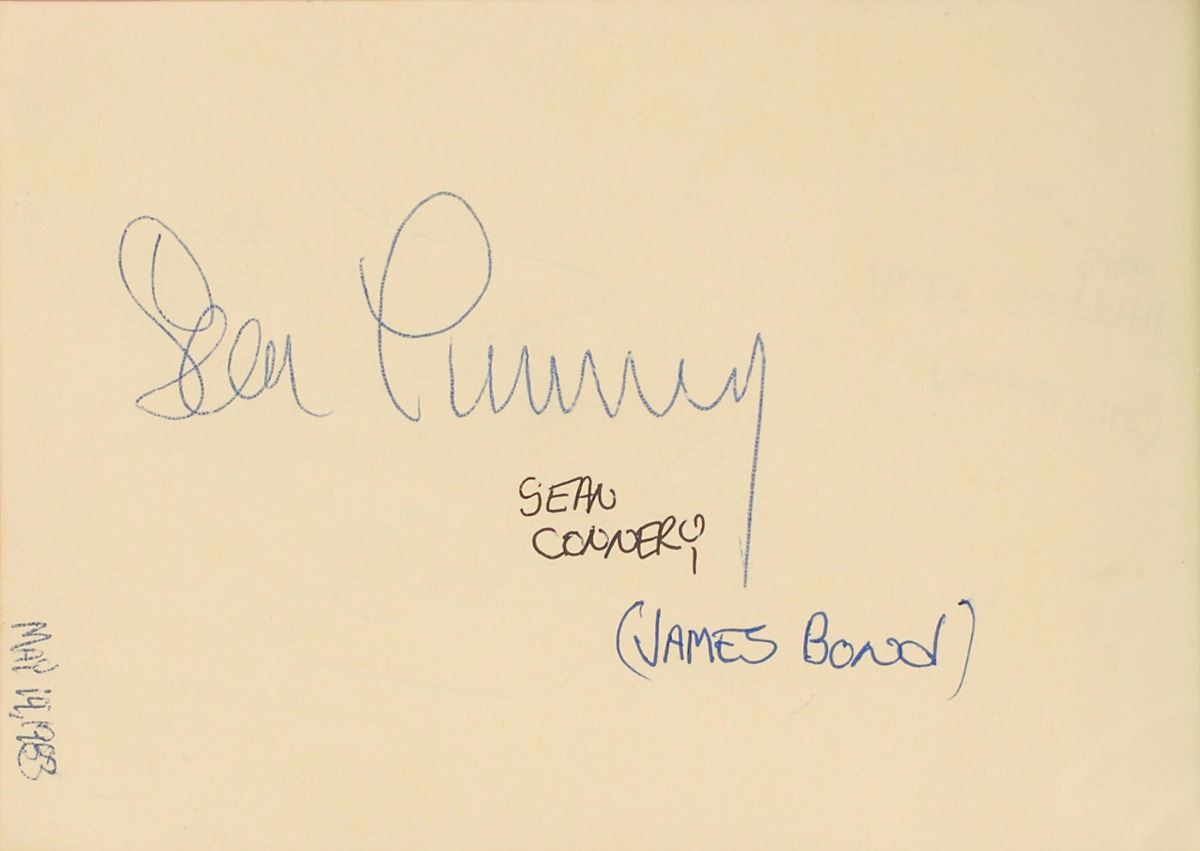 Sean Connery
SEAN
CONNERY
(JAMES BOND)
MAY 19, 1983